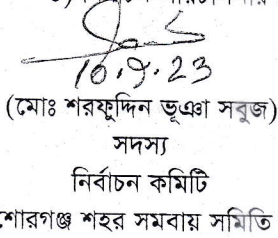 16.9.23
(মোঃ শরফুদ্দিন ভূঞা সবুজ)
সদস্য
নির্বাচন কমিটি
শোরগঞ্জ শহর সমবায় সমিতি